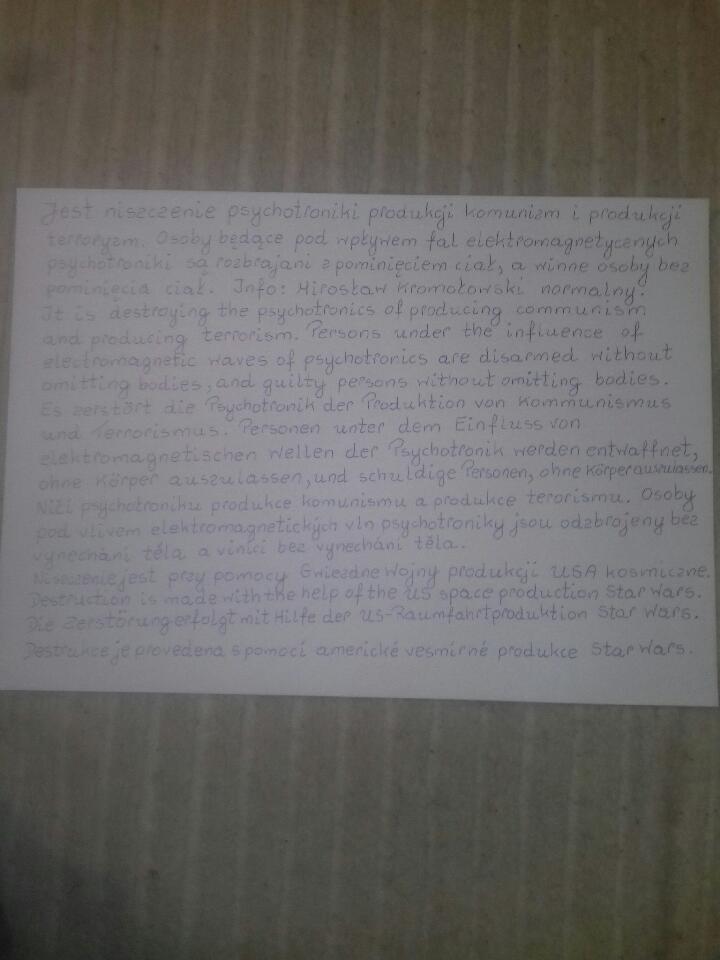 Jest niszczenie psychotroniki produkcji komunizm i produkcji
terroryzm. Osoby będące pod wpływem fal elektromagnetycznych
psychotroniki są rozbrajani z pominięciem ciał, a winne osoby bez
pominięcia ciał. Info: Mirosław Kromołowski normalny.
It is destroying the psychotronics of producing communism
and producing terrorism. Persons under the influence of
electromagnetic waves of psychotronics are disarmed without
omitting bodies, and guilty persons without omitting bodies.
Es zerstört die Psychotronik der Produktion von Kommunismus
und Terrorismus. Personen unter dem Einfluss von
elektromagnetischen Wellen der Psychotronik werden entwaffnet,
ohne Körper auszulassen, und schuldige Personen, ohne Körper auszulassen.
Ničí psychotroniku produkce komunismu a produkce terorismu. Osoby
pod vlivem elektromagnetických vln psychotroniky jsou odzbrojeny bez
vynechání těla a viníci bez vynechání těla.
Niszczenie jest przy pomocy Gwiezdne Wojny produkcji USA kosmiczne.
Destruction is made with the help of the US space production Star Wars.
Die Zerstörung erfolgt mit Hilfe der US-Raumfahrtproduktion Star Wars.
Destrukce je provedena s pomocí americké vesmírné produkce Star Wars.